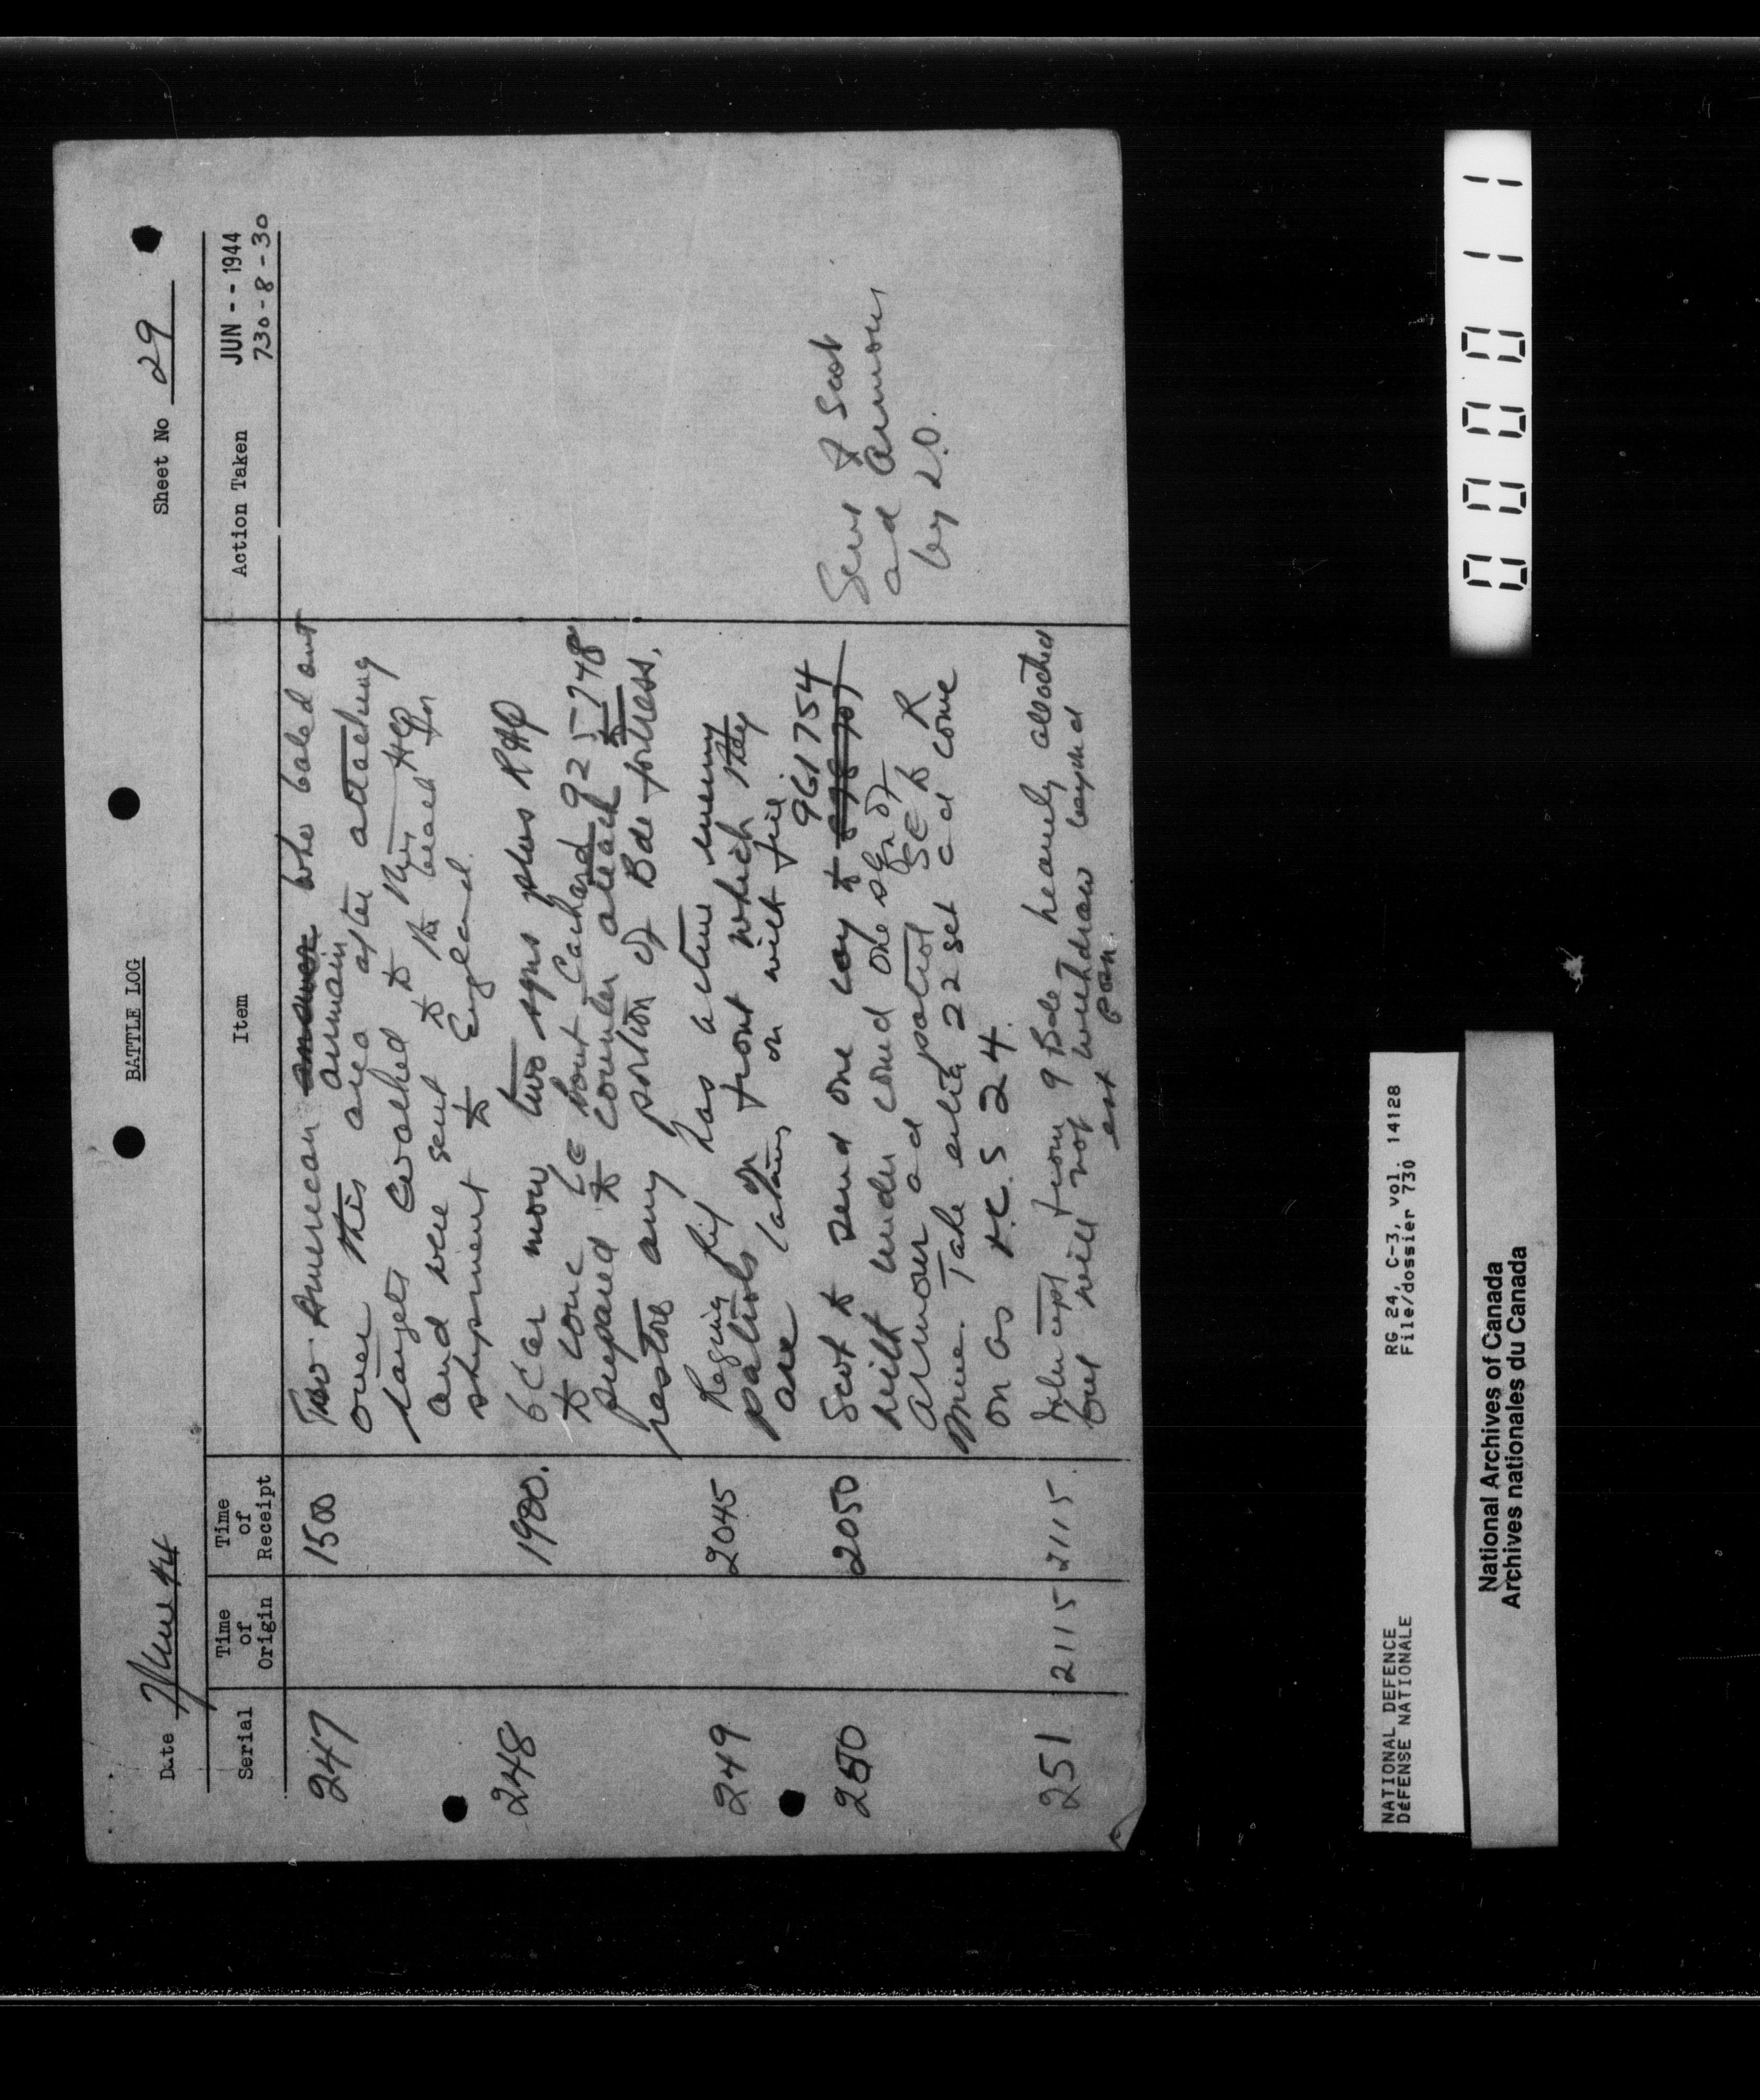 BATTLE LOG
Date 7 June 44
Sheet No 29
Serial
Time of Origin
Time of Receipt
Item
Action Taken
JUN -- 1944
730-8-30
247 1500 Two American who baled out
airmen
over this area after attacking
targets walked to this HQ
and were sent to the beach for
shipment to England.
248 1900. 6 Car now two sqns plus RHQ
to conc 925748
prepared to counter attack to
restore any portion of Bde fortress.
249 2045 Regina Rif has active enemy
patrols on front which they
are on with fire
961754
250 2050 Scot to send one coy to
with under comd one of
armour and patrol SE to R
Mue. Take extra 22 set and come
on as 24.
251 2115 2115 from 9 Bde heavily attacked
but will not withdraw beyond
est
Sent to Scot
and Armour
by LO.
NATIONAL DEFENCE
DÉFENSE NATIONALE
RG 24, C-3, vol. 14128
File/dossier 730
National Archives of Canada
Archives nationales du Canada
0000011